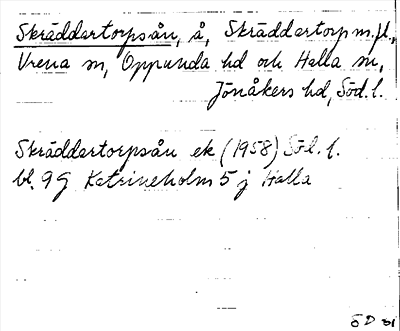 Skräddartorpsån, å, Skräddartorp m.fl.,
Vrena sn, Oppunda hd och Halla sn,
Jönåkers hd, Söd. l.
Skräddartorpsån ek (1958) Söd. l.
bl. 9G Katrineholm 5 j Halla
SD 81